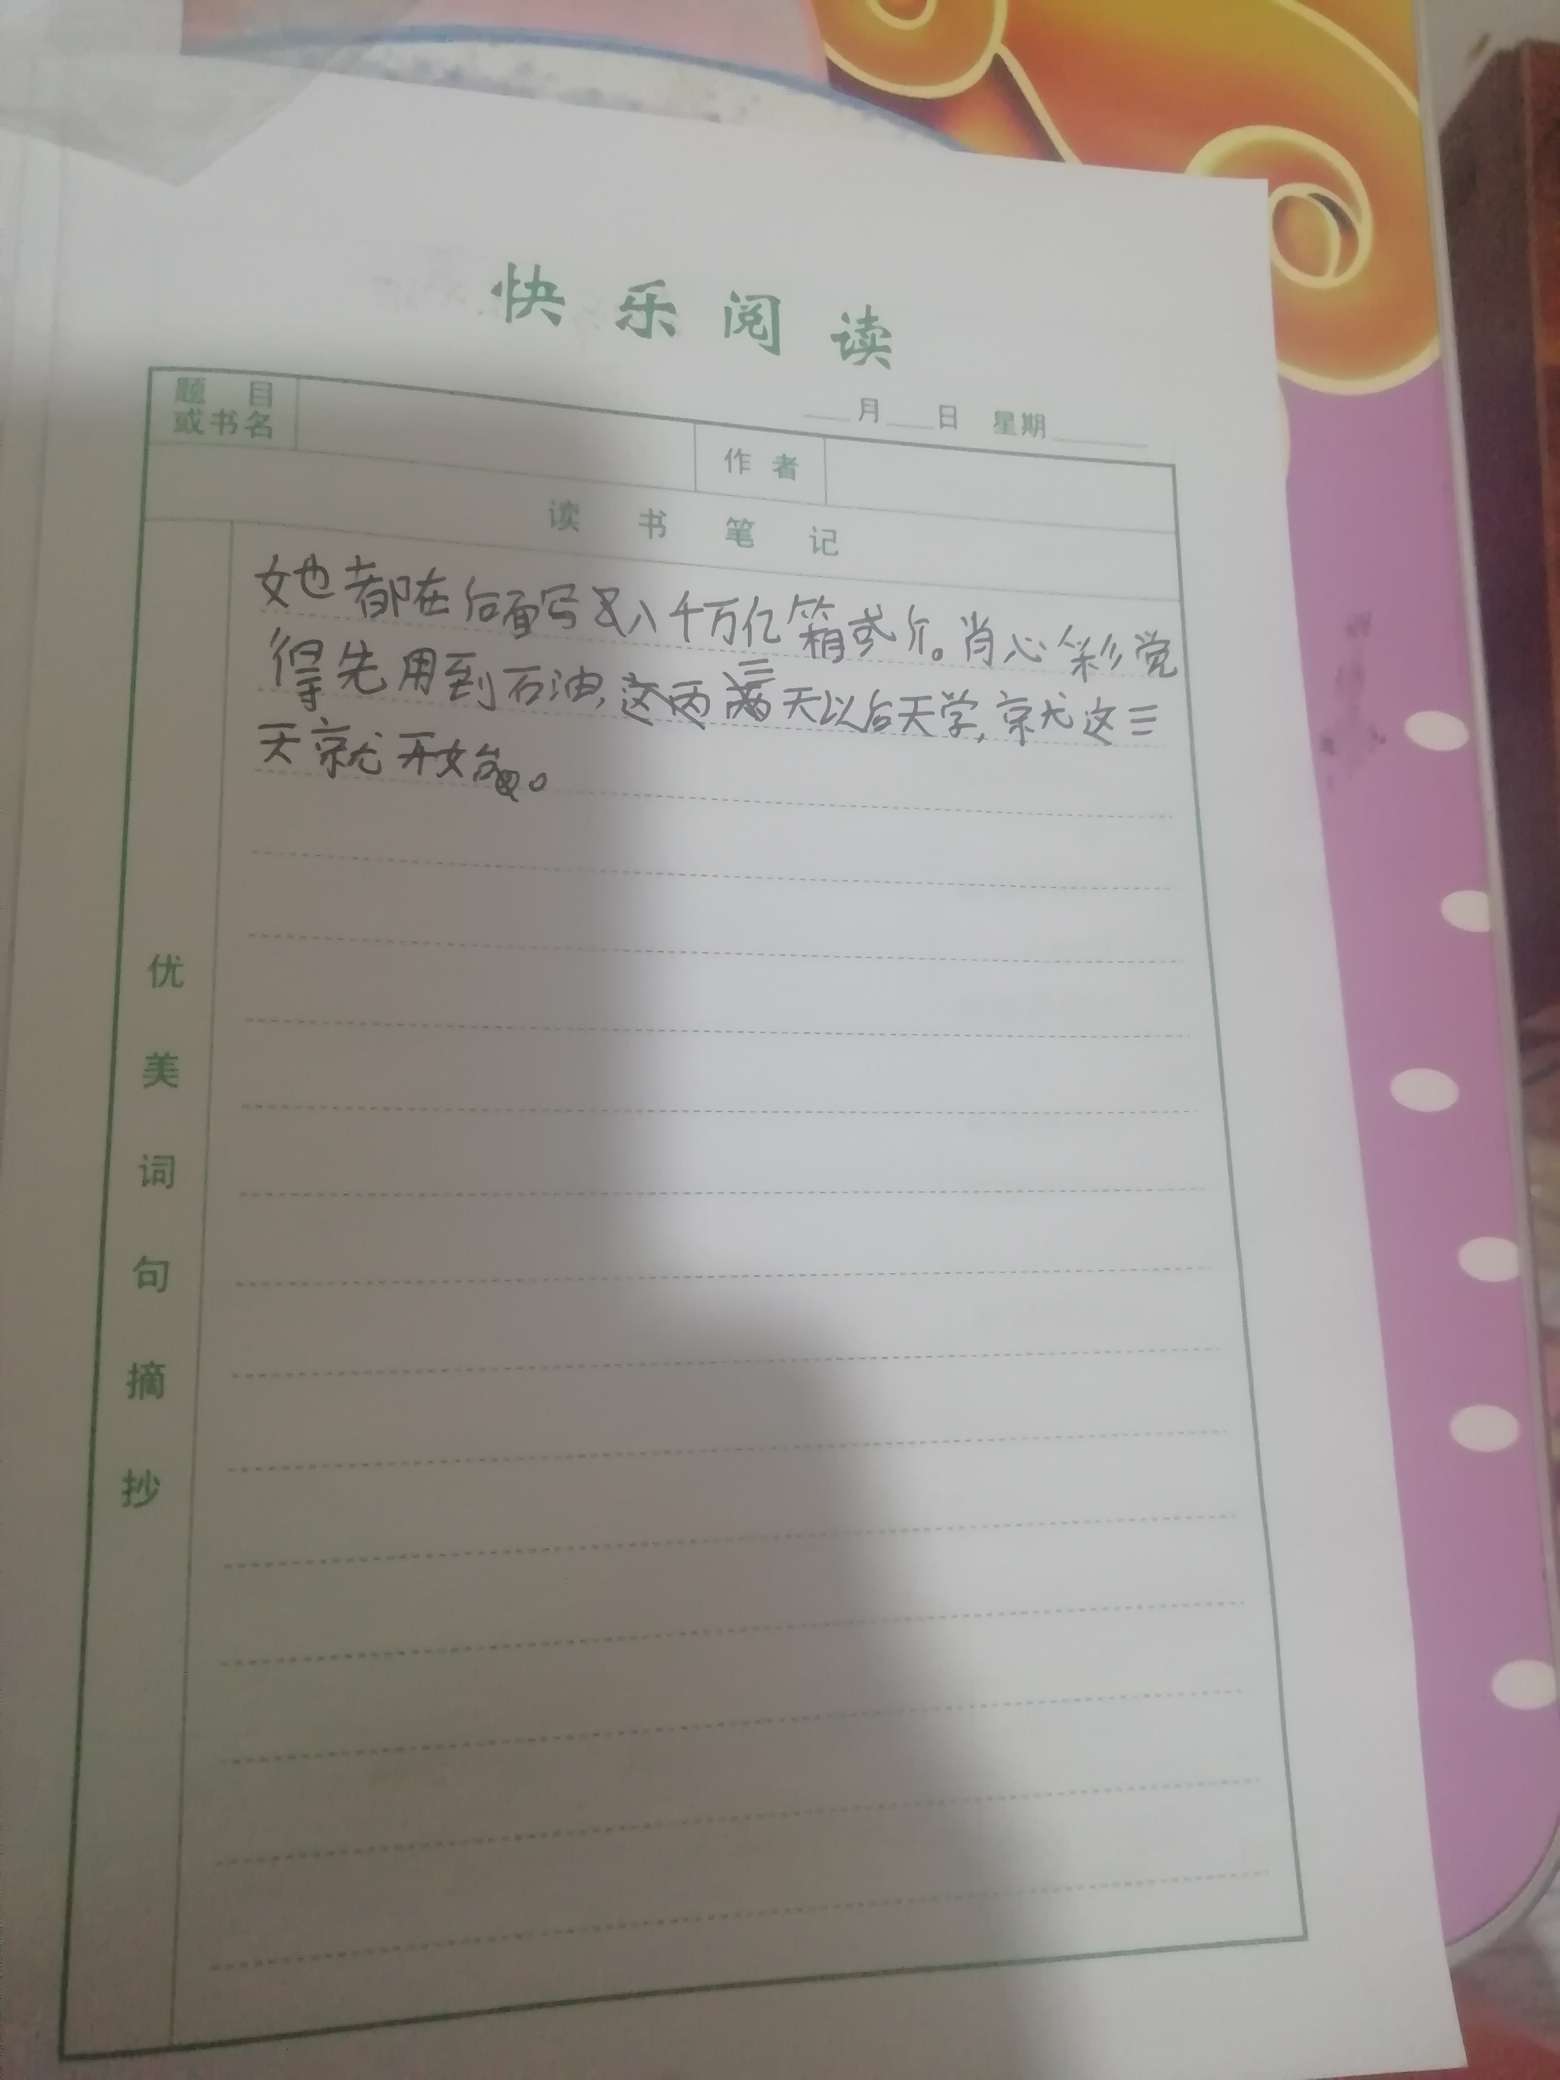 快乐阅读
月 日 星期
题目
或书名
作者
读书笔记
她都在后面写 八千万亿箱 尔。肖心彩觉
得先用到石油,这两 三天以后天学,就这三
天就开始。
优美词句摘抄